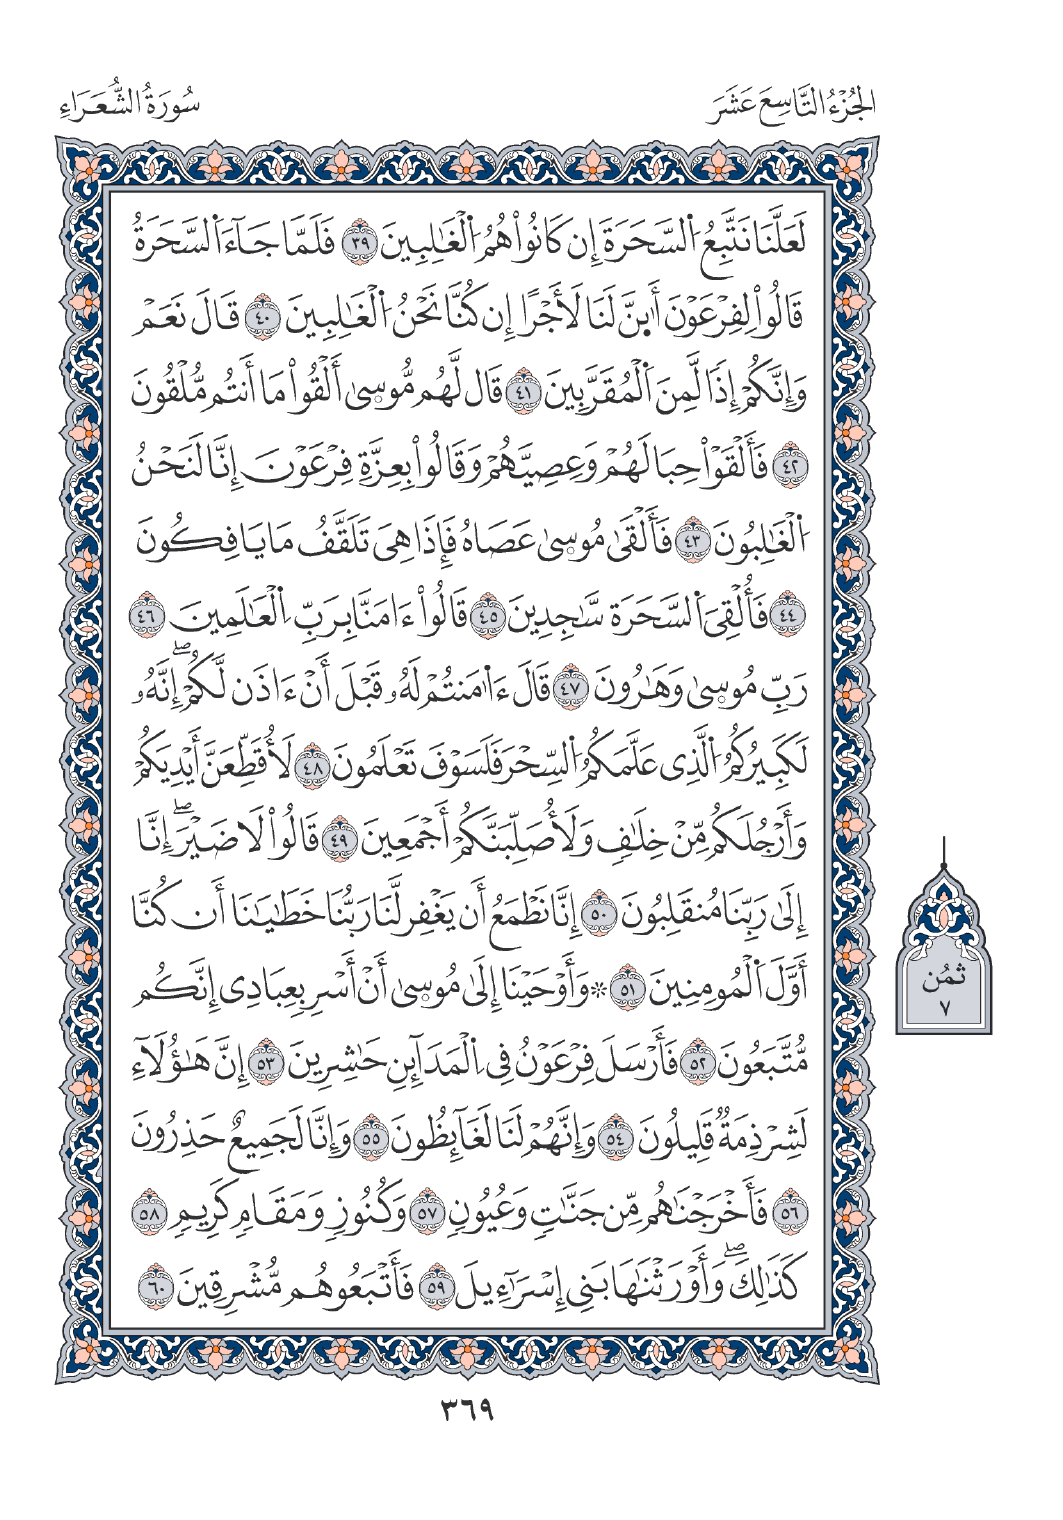 الجُزْءُ التَّاسِعَ عَشَرَ
سُورَةُ الشُّعَرَاءِ
لَعَلَّنَا نَتَّبِعُ اَ۬لسَّحَرَةَ إِن كَانُواْ هُمُ اُ۬لْغَٰلِبِينَ ٣٩ فَلَمَّا جَآءَ اَ۬لسَّحَرَةُ
قَالُواْ لِفِرْعَوْنَ أَٜىِٕنَّ لَنَا لَأَجْرًا إِن كُنَّا نَحْنُ اُ۬لْغَٰلِبِينَ ٤٠ قَالَ نَعَمْ
وَإِنَّكُمْ إِذًا لَّمِنَ اَ۬لْمُقَرَّبِينَ ٤١ قَال لَّهُم مُّوسِىٰ أَلْقُواْ مَا أَنتُم مُّلْقُونَ
٤٢ فَأَلْقَوْاْ حِبَالَهُمْ وَعِصِيَّهُمْ وَقَالُواْ بِعِزَّةِ فِرْعَوْنَ إِنَّا لَنَحْنُ
اُ۬لْغَٰلِبُونَ ٤٣ فَأَلْقَىٰ مُوسِىٰ عَصَاهُ فَإِذَا هِيَ تَلَقَّفُ مَا يَافِكُونَ
٤٤ فَأُلْقِيَ اَ۬لسَّحَرَة سَّٰجِدِينَ ٤٥ قَالُواْ ءَامَنَّا بِرَبِّ اِ۬لْعَٰلَمِينَ ٤٦
رَبِّ مُوسِىٰ وَهَٰرُونَ ٤٧ قَالَ ءَا۬مَنتُمْ لَهُۥ قَبْلَ أَنْ ءَاذَن لَّكُمْۖ إِنَّهُۥ
لَكَبِيرُكُمُ اُ۬لَّذِي عَلَّمَكُمُ اُ۬لسِّحْرَ فَلَسَوْفَ تَعْلَمُونَ ٤٨ لَأُقَطِّعَنَّ أَيْدِيَكُمْ
وَأَرْجُلَكُم مِّنْ خِلَٰفٖ وَلَأُصَلِّبَنَّكُمْ أَجْمَعِينَ ٤٩ قَالُواْ لَا ضَيْرَۖ إِنَّا
إِلَىٰ رَبِّنَا مُنقَلِبُونَ ٥٠ إِنَّا نَطْمَعُ أَن يَغْفِر لَّنَا رَبُّنَا خَطَٰيَٰنَا أَن كُنَّا
أَوَّلَ اَ۬لْمُومِنِينَ ٥١ ۞وَأَوْحَيْنَا إِلَىٰ مُوسِىٰ أَنْ أَسْرِ بِعِبَادِي إِنَّكُم
مُّتَّبَعُونَ ٥٢ فَأَرْسَلَ فِرْعَوْنُ فِي اِ۬لْمَدَآئِنِ حَٰشِرِينَ ٥٣ إِنَّ هَٰؤُلَآءِ
لَشِرْذِمَةٞ قَلِيلُونَ ٥٤ وَإِنَّهُمْ لَنَا لَغَآئِظُونَ ٥٥ وَإِنَّا لَجَمِيعٌ حَذِرُونَ
٥٦ فَأَخْرَجْنَٰهُم مِّن جَنَّٰتٖ وَعُيُونٖ ٥٧ وَكُنُوزٖ وَمَقَامٖ كَرِيمٖ ٥٨
كَذَٰلِكَۖ وَأَوْرَثْنَٰهَا بَنِي إِسْرَآءِيلَ ٥٩ فَأَتْبَعُوهُم مُّشْرِقِينَ ٦٠
ثمُن
٧
٣٦٩